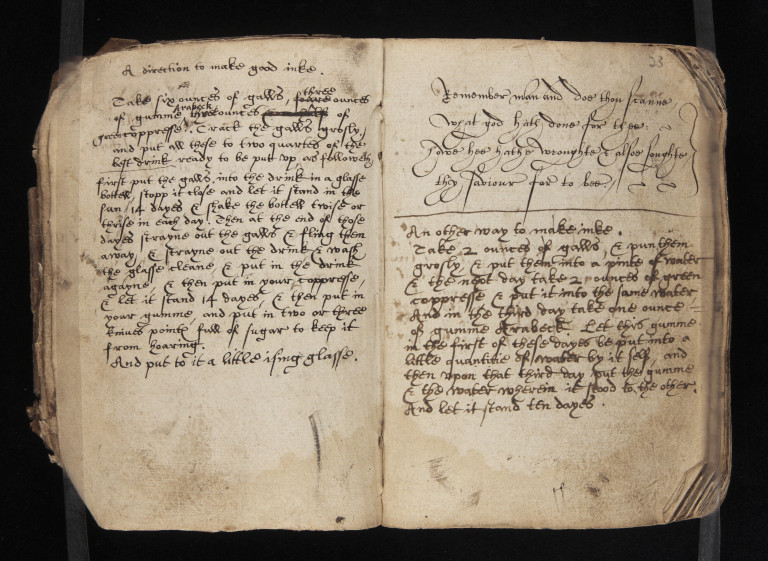 A direction to make good inke.
Take six ounces of galls, three ounces
of gumme Arabeck, three ounces of
green coppresse. Crack the galls grosly,
and put all these to two quartes of the
best drink ready to be put up, as followeth
first put the galls, into the drink in a glasse
bottell, stopp it close and let it stand in the
sun, 14 dayes & shake the bottell twise or
thrise in each day. Then at the end of those
dayes strayne out the galls & fling them
away, & strayne out the drink & wash
the glasse cleane, & put in the drink
agayne, & then put in your coppresse,
& let it stand 14 dayes, & then put in
your gumme, and put in two or three
knives points full of sugar to keep it
from hoaring.
And put to it a little ising glasse.
23
Remember man and doe thou scanne
What god hath done for thee:
Howe hee hathe wroughte & alsoe soughte
thy saviour for to bee,
An other way to make inke.
Take 2 ounces of galls, & pun them
grosly, & put them into a pinte of water
& the next day take 2 ounces of green
coppresse & put it into the same water
And in the third day take one ounce
of gumme Arabeck. Let this gumme
in the first of these dayes be put into a
little quantitie of water by it self, and
then upon that third day put the gumme
& the water wherein it stood to the other.
And let it stand ten dayes.